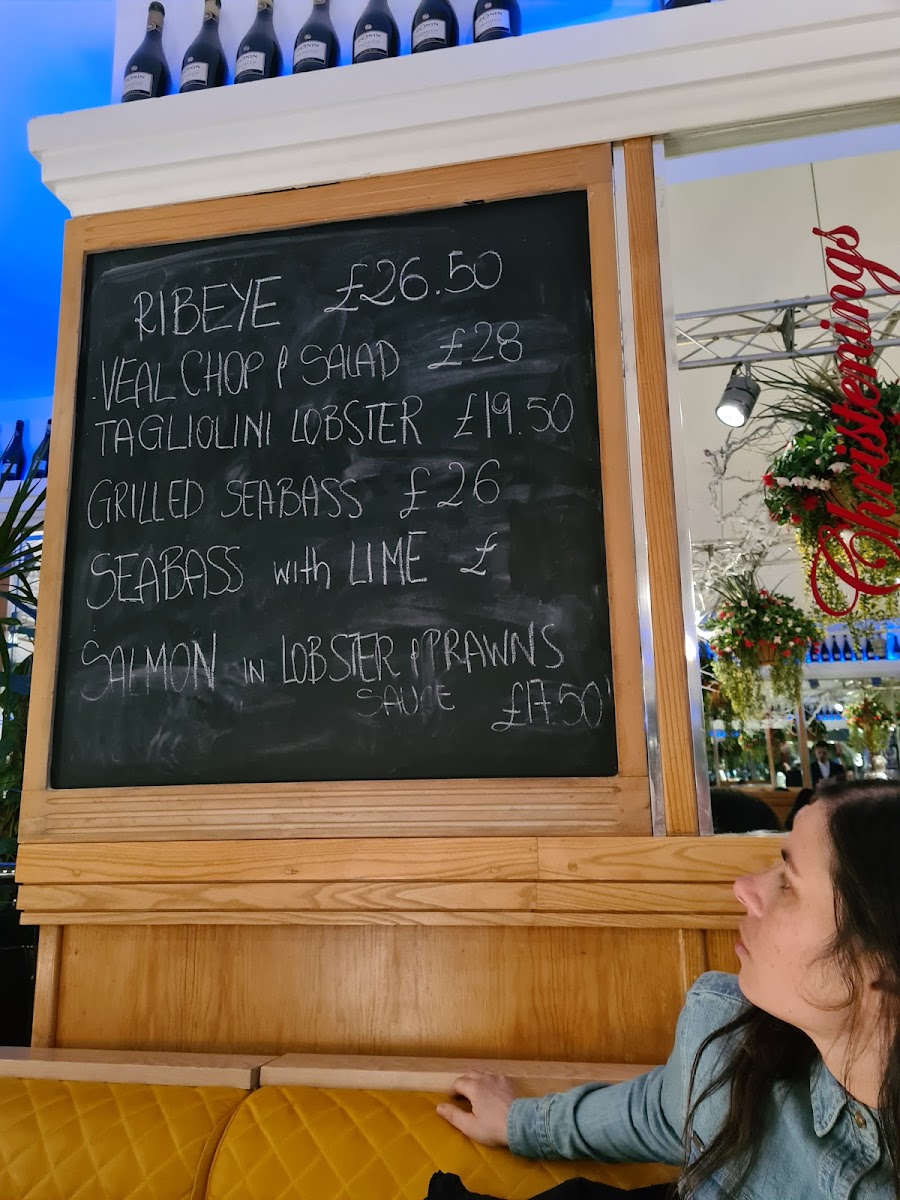 RIBEYE £26.50
VEAL CHOP & SALAD £28
TAGLIOLINI LOBSTER £19.50
GRILLED SEABASS £26
SEABASS with LIME £
SALMON IN LOBSTER & PRAWNS
SAUCE £17.50
Christenings